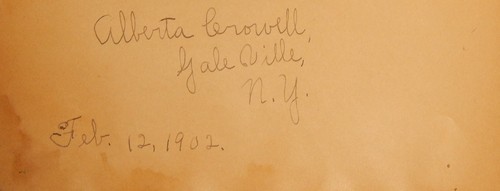 Alberta Crowell,
Gale Ville,
N.Y.
Feb. 12, 1902.